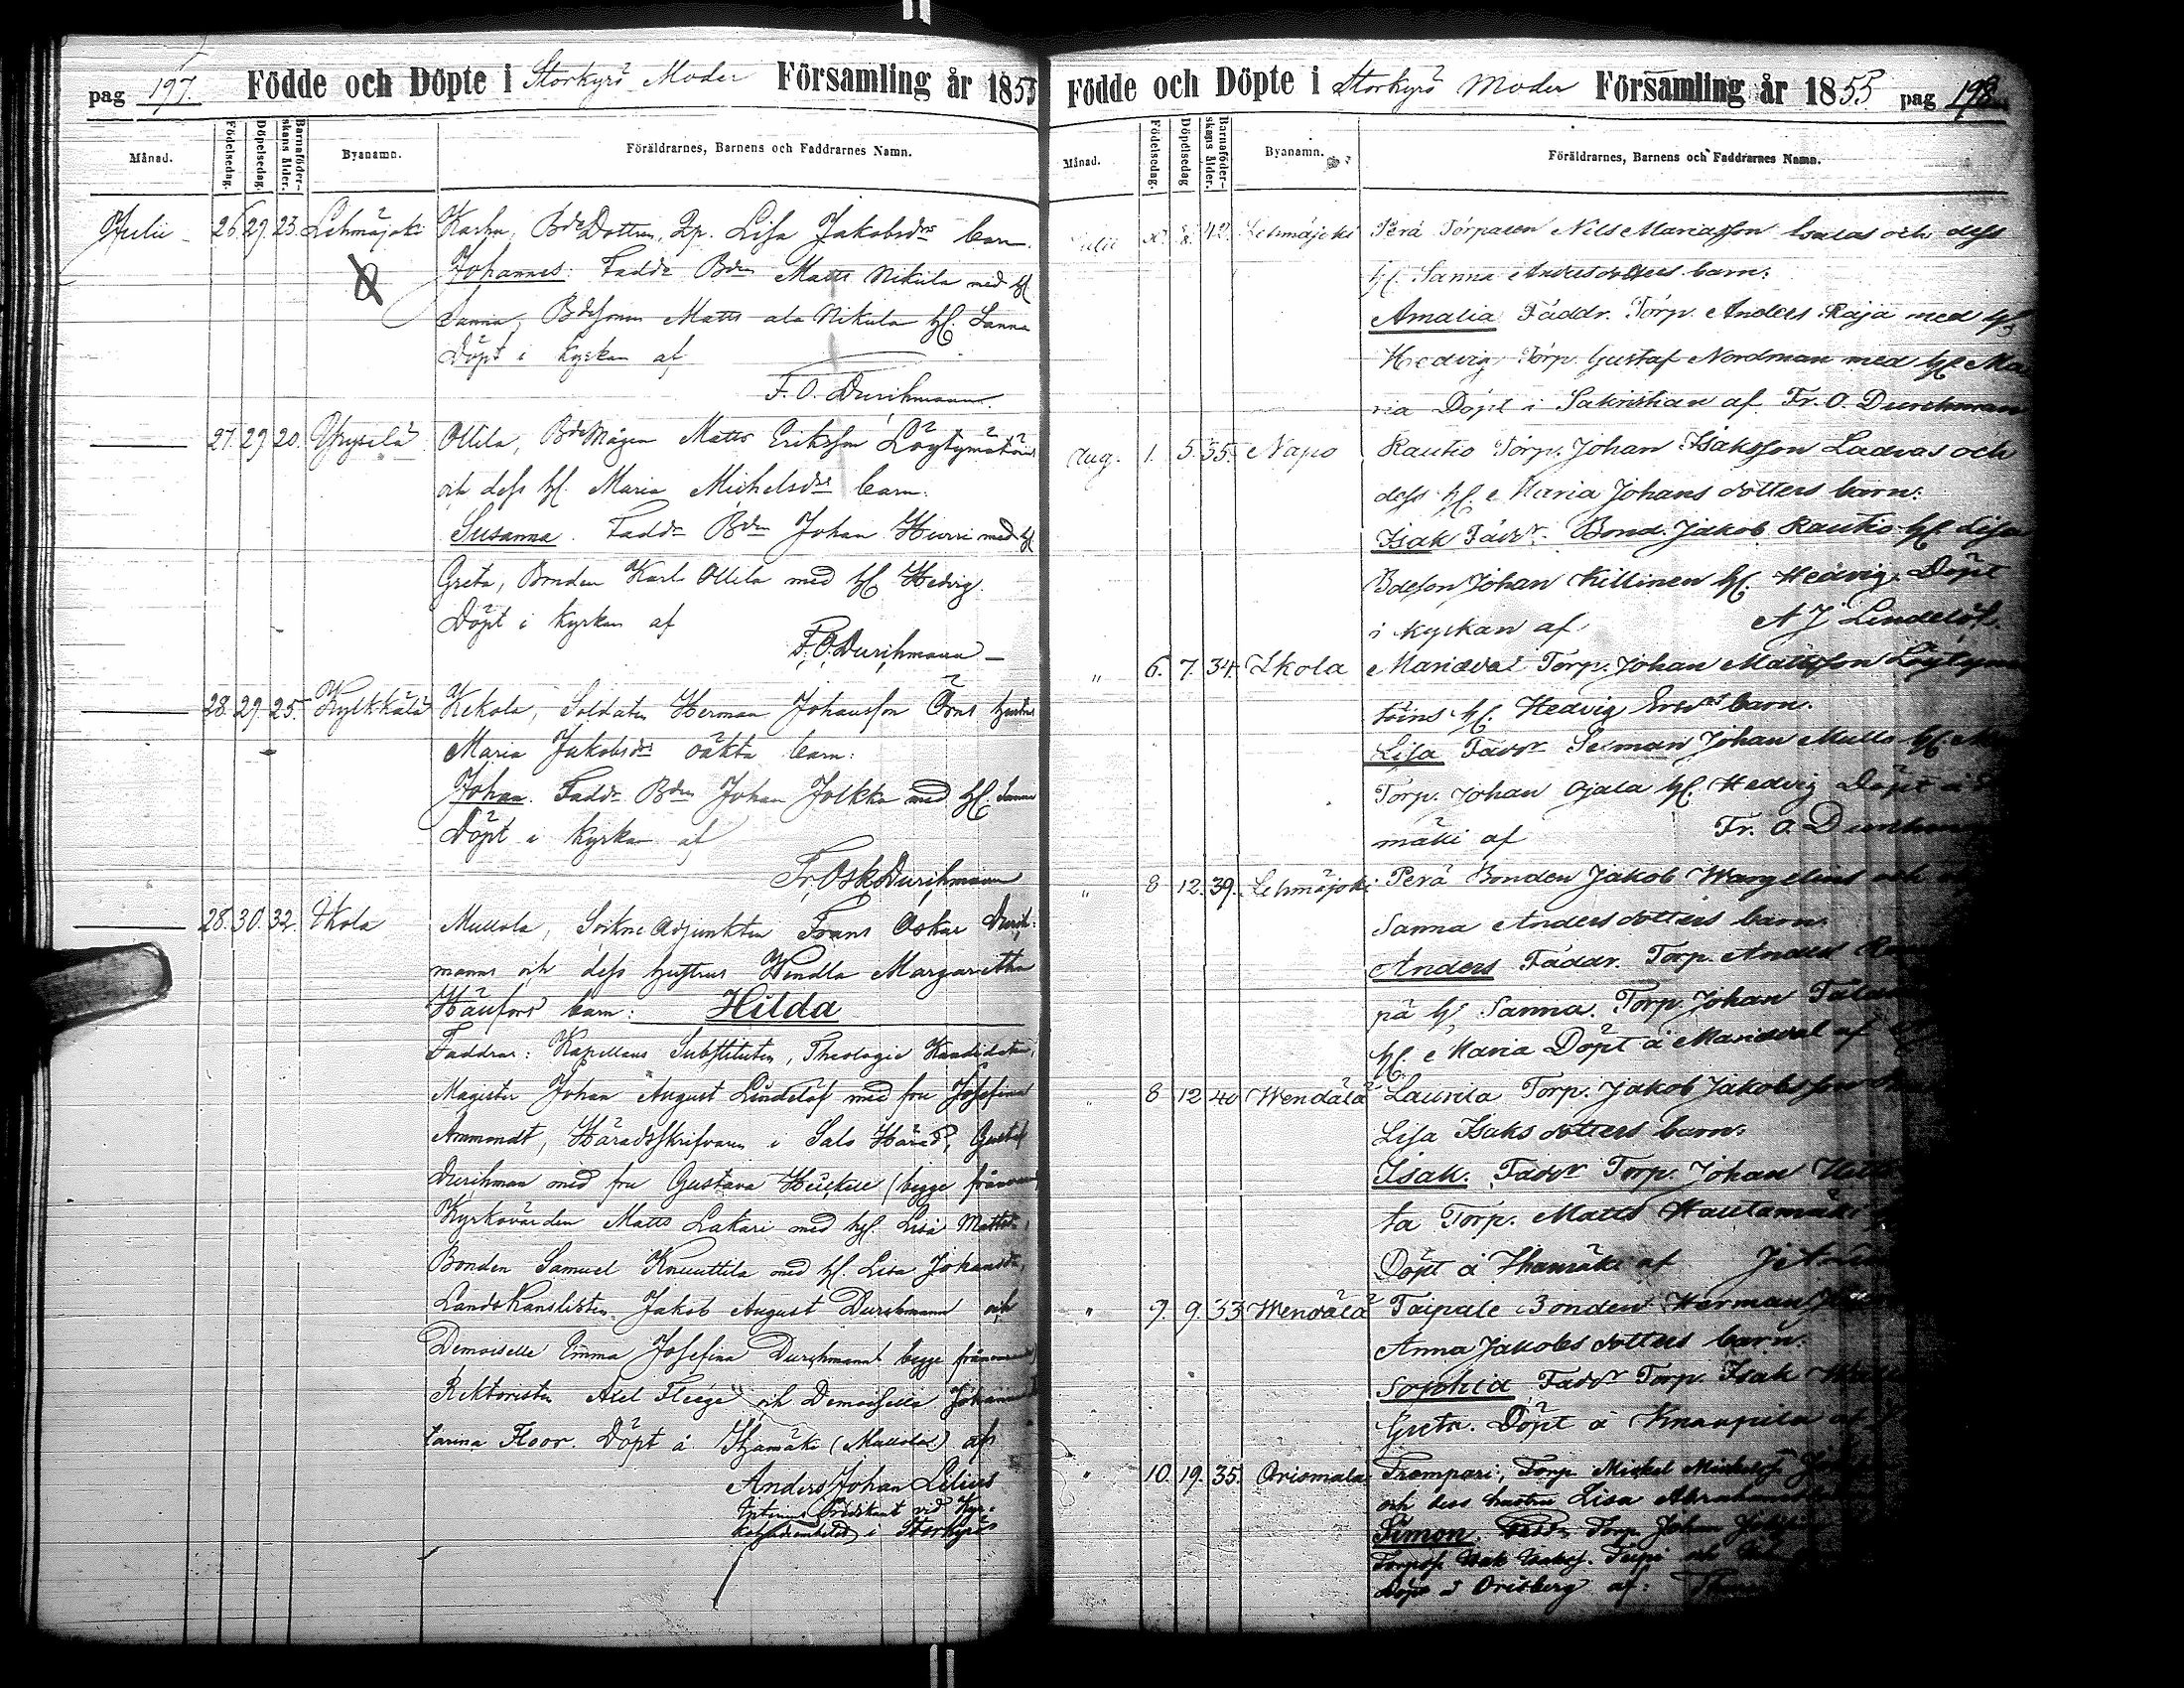 pag 197. Födde och Döpte i Storkyrö Moder Församling år 1855
Månad. Födelsedag. Döpelsedag. Barnaföder-skans ålder. Byanamn. Föräldrarnes, Barnens och Faddrarnes Namn.
Julii 26. 29. 23. Lehmäjoki Karhu, Bde Dottren, Lisa Jakobsdrs barn.
Johannes: Fadde Bdn Matts Nikula med h
Sanna, Bdesonen Matts ala Nikula h. Sanna
Döpt i Kyrkan af
F. O. Durchmann.
27. 29. 20. Ottila, Bde Mågen Matts Eriksson Löytymätöin
och dess h. Maria Michelsdrs barn.
Susanna. Faddr Bdn Johan Hiirri med h
Greta, Bonden Karl Ottila med h. Hedvig.
Döpt i Kyrkan af
F. O. Durchmann
28. 29. 25. Kylkkälä Kekola, Soldaten Herman Johansson Örns hustru
Maria Jakobsdrs oäkta barn:
Johan. Faddr Bdn Johan Jolkka med h. Sanna
Döpt i Kyrkan af
Fr. Osk. Durchmann
28. 30. 32. Ikola Mullola, Sockne Adjunkten Frans Oskar Durch-
manns och dess hustrus Wendla Margaretha
barn: Hilda
Faddrar: Kapellans Substituten, Theologie Kandidaten,
Magister Johan August Lindelöf med fru Josefina
Ammondt, Häradsskrifvaren i Salo Härad, Gustaf
Durchman med fru Gustava (begge frånvarand
Kyrkovärden Matts Lakari med h. Lisa Mattsdr,
Bonden Samuel Knuuttila med h. Lisa Johansdr,
Landskanslisten Jakob August Durchmann och
Demoiselle Emma Josefina Durchmann begge frånvarande
Rektoristen Axel Fleege och Demoiselle Johanna
Carina Floor. Döpt å Hjamäki (Mullola) af
Anders Johan Lilius
Extrao. Predikant vid Kyr-
i Storkyrö
Födde och Döpte i Storkyrö Moder Församling år 1855 pag 198
Månad. Födelsedag. Döpelsedag Barnaföder-skans ålder. Byanamn. Föräldrarnes, Barnens och Faddrarnes Namn.
Julii 42. Lehmäjoki Perä Torparen Nils Mariasson och dess
h. Sanna Andersdotters barn:
Amalia Faddr. Torp. Anders Raja med h
Hedvig, Torp. Gustaf Nordman med h. Ma
ria Döpt i Sakristian af Fr. O. Durchman
Aug. 1. 5. 35. Napo Rautio Torp. Johan Isaksson Ladvas och
dess h. Maria Johans dotters barn:
Isak Faddr. Bond. Jakob Rautio h. Lisa
Bdeson Johan Killinen h. Hedvig. Döpt
i Kyrkan af A J Lindelöf.
" 6. 7. 34. Ikola Mariedal Torp. Johan Mattsson Löytymä
töins h. Hedvig barn.
Lisa Faddr Johan Mullo h.
Torp. Johan Ojala h. Hedvig Döpt å
mäki af Fr. O. Durchman
" 8 12. 39. Lehmäjoki Perä Bonden Jakob Wargelins och
Sanna Anders dotters barn.
Anders Faddr. Torp. Anders
pä h. Sanna. Torp. Johan
h. Maria Döpt å Mariedal af
" 8 12 40 Wendälä Laurila Torp. Jakob Jakobsson
Lisa Isaks dotters barn.
Isak. Faddr Torp. Johan
ta Torp. Matts Hautamäki
Döpt å af
" 9. 9. 33 Wendälä Taipale Bonden Herman
Anna Jakobs dotters barn.
Sophia Faddr Torp. Isak
Greta. Döpt å Knaapila af
" 10. 19. 35. Orismala Trompari, Torp. Mickel Mickelss
och dess hustru Lisa Abrahams
Simon. Faddr Torp. Johan
Isak Isakss. och
Döpt å Orisberg af: